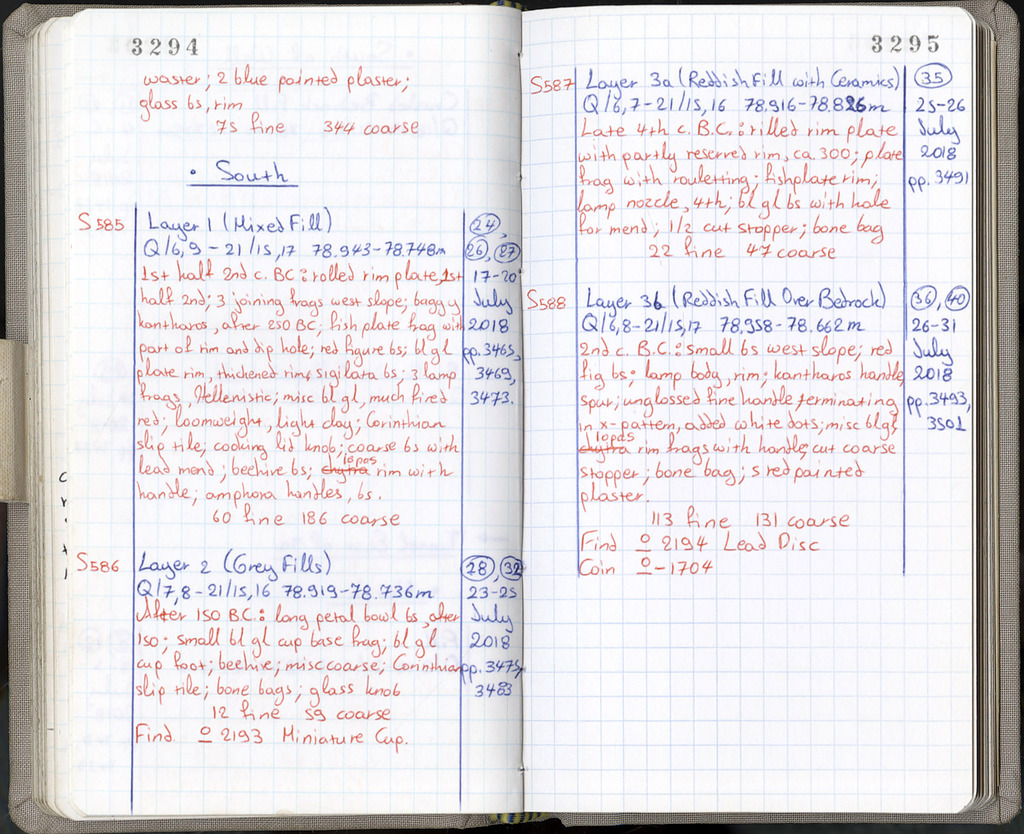 3294
waster; 2 blue painted plaster;
glass bs, rim
75 fine 344 coarse
• South
S585 Layer 1 (Mixed Fill) 24,
Q/6,9-21/15,17 78.943-78.748m 26, 27
1st half 2nd c. BC: rolled rim plate, 1st 17-20
half 2nd; 3 joining frags west slope; baggy July
kantharos, after 250 BC; fish plate frag with 2018
part of rim and dip hole; red figure bs; bl gl pp. 3465,
plate rim, thickened rim; sigilata bs; 3 lamp 3469,
frags, Hellenistic; misc bl gl, much fired 3473.
red; loomweight, light clay; Corinthian
slip tile; cooking lid knob; coarse bs with
lead mend; beehive bs; chytra lopas rim with
handle; amphora handles, bs.
60 fine 186 coarse
S586 Layer 2 (Grey Fills) 28, 32
Q/7,8-21/15,16 78.919-78.736m 23-25
After 150 B.C.: long petal bowl bs, after July
150; small bl gl cup base frag; bl gl 2018
cup foot; beehive; misc coarse; Corinthian pp. 3475,
slip tile; bone bags; glass knob 3483
12 fine 59 coarse
Find º 2193 Miniature Cup.
3295
S587 Layer 3a (Reddish Fill with Ceramics) 35
Q/6,7-21/15,16 78.916-78.826m 25-26
Late 4th c. B.C.: rilled rim plate July
with partly reserved rim, ca. 300; plate 2018
frag with rouletting; fishplate rim; pp. 3491
lamp nozzle, 4th; bl gl bs with hole
for mend; 1/2 cut stopper; bone bag
22 fine 47 coarse
S588 Layer 3b (Reddish Fill Over Bedrock) 36, 40
Q/6,8-21/15,17 78.958-78.662m 26-31
2nd c. B.C.: small bs west slope; red July
fig bs; lamp body, rim; kantharos handle 2018
spur; unglossed fine handle terminating pp. 3493,
in x-pattern, added white dots; misc bl gl; 3501
chytra lopas rim frags with handle; cut coarse
stopper; bone bag; 5 red painted
plaster.
113 fine 131 coarse
Find º 2194 Lead Disc
Coin º-1704